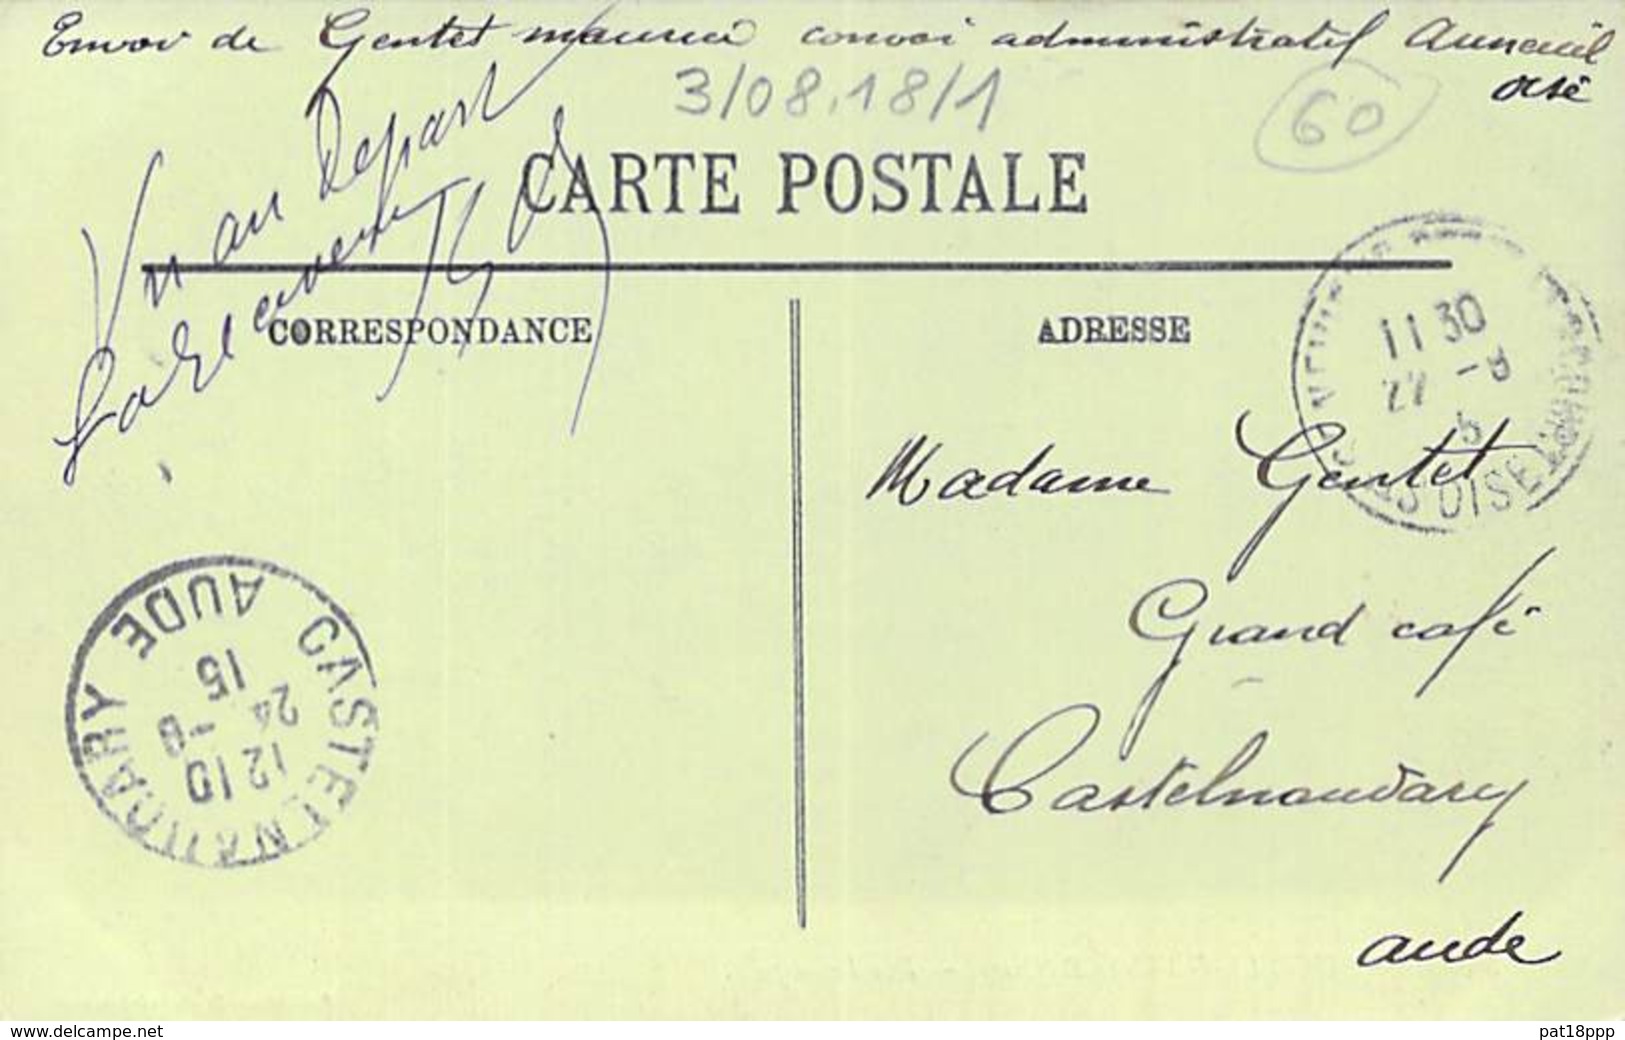 Envoi de Gentet maurice convoi administratif Auneuil
oise
3/08.18/1
60
Vu au Depart
CARTE POSTALE
CORRESPONDANCE
ADRESSE
11 30
22 -8
5
OISE
Madame Gentet
Grand café
Castelnaudary
aude
CASTELNAUDARY
AUDE
12 10
24 -8
15
www.delcampe.net
pat18ppp